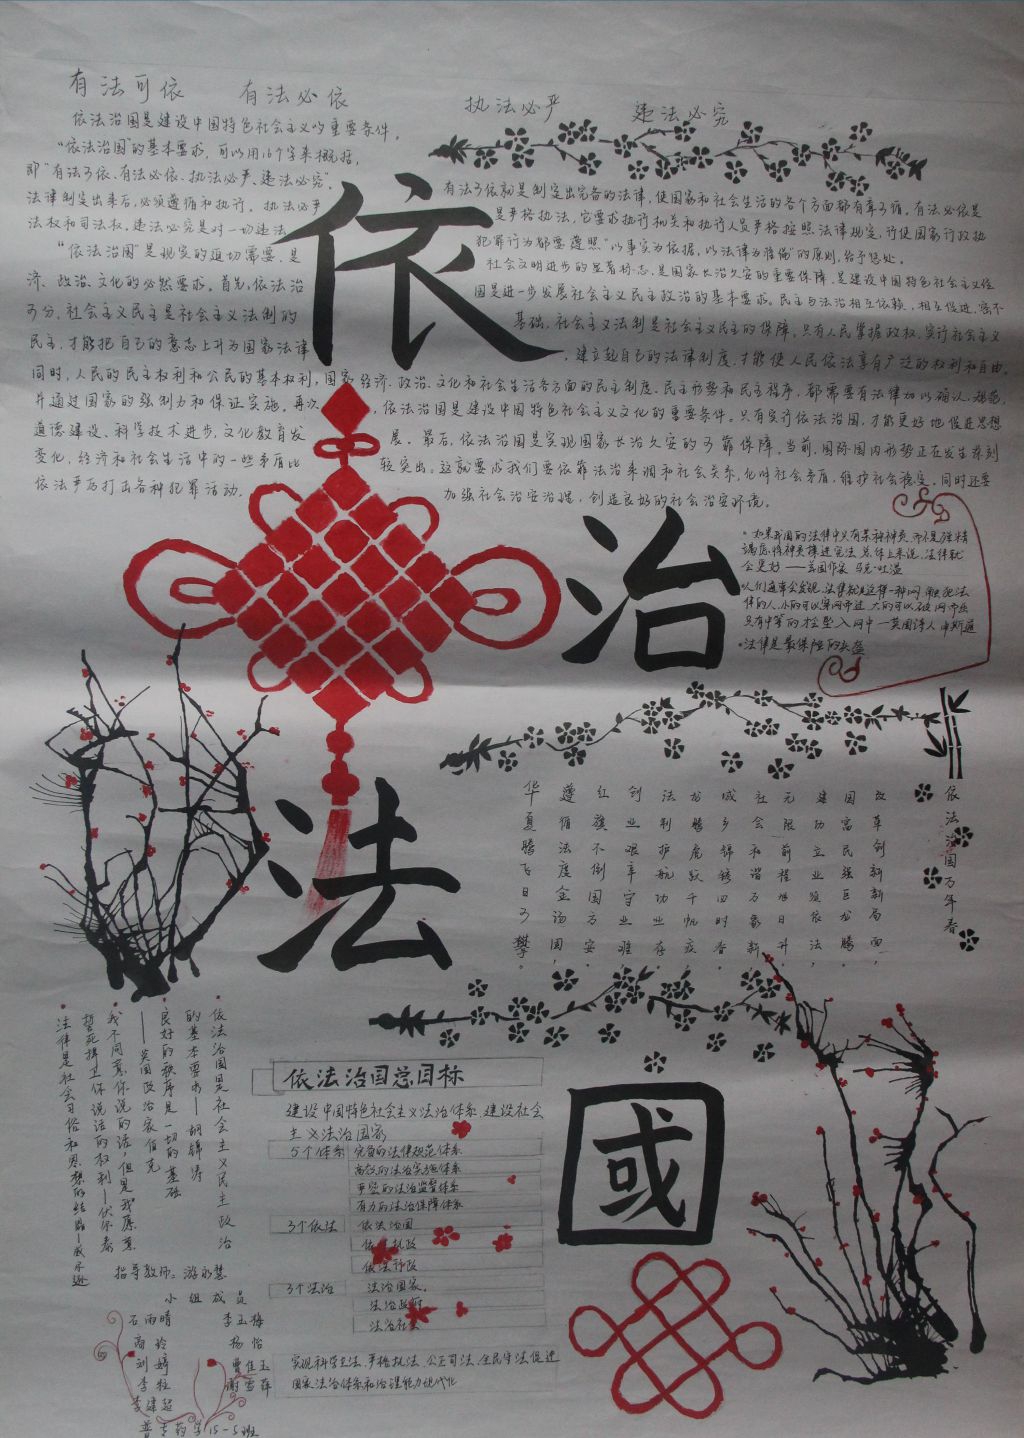 有法可依 有法必依 执法必严 违法必究
依法治国是建设中国特色社会主义的重要条件。
“依法治国”的基本要求,可以用16个字来概括,
即“有法可依、有法必依、执法必严、违法必究”。
有法可依就是制定出完备的法律,使国家和社会生活的各个方面都有章可循。有法必依是
法律制定出来后,必须遵循和执行。执法必严
是严格执法,它要求执行机关和执行人员严格按照法律规定,行使国家行政执
法权和司法权。违法必究是对一切违法
犯罪行为都要遵照“以事实为依据,以法律为准绳”的原则,给予惩处。
“依法治国”是现实的迫切需要,是
社会文明进步的显著标志,是国家长治久安的重要保障,是建设中国特色社会主义经
济、政治、文化的必然要求。首先,依法治
国是进一步发展社会主义民主政治的基本要求。民主与法治相互依赖、相互促进、密不
可分。社会主义民主是社会主义法制的
基础,社会主义法制是社会主义民主的保障。只有人民掌握政权,实行社会主义
民主,才能把自己的意志上升为国家法律
,建立起自己的法律制度,才能使人民依法享有广泛的权利和自由。
同时,人民的民主权利和公民的基本权利,国家经济、政治、文化和社会生活各方面的民主制度、民主形势和民主程序,都需要有法律加以确认、规范,
并通过国家的强制力和保证实施。再次,依法治国是建设中国特色社会主义文化的重要条件。只有实行依法治国,才能更好地促进思想
道德建设、科学技术进步,文化教育发展。最后,依法治国是实现国家长治久安的可靠保障。当前,国际国内形势正在发生深刻
变化,经济和社会生活中的一些矛盾比较突出。这就要求我们要依靠法治来调和社会关系,化解社会矛盾,维护社会稳定,同时还要
依法严厉打击各种犯罪活动,加强社会治安治理,创造良好的社会治安环境。
依
治
法
國
会更好——美国作家 马克·吐温
只有中等的才坠入网中——英国诗人 申斯通
法律是最保险的头盔
依法治国万年春
改革创新新局面,
国富民强巨龙腾。
建功立业须依法,
元限前程旭日升。
社会和谐万象新,
城乡锦绣四时春。
龙腾虎跃千帆竞
法利护航功业存
创业艰辛守业难
红旗不倒国方安。
遵循法度金汤固,
华夏腾飞日可攀。
依法治国是社会主义民主政治
的基本要求——胡锦涛
良好的秩序是一切的基础
——英国政治家伯克
我不同意你说的话,但是我愿意
誓死捍卫你说话的权利—伏尔泰
法律是社会习俗和思想的结晶—威尔逊
依法治国总目标
建设中国特色社会主义法治体系、建设社会
主义法治国家
5个体系 完备的法律规范体系
高效的法治实施体系
严密的法治监督体系
有力的法治保障体系
3个依法 依法治国
依法执政
依法行政
3个法治 法治国家。
法治政府
法治社会
实现科学立法、严格执法、公正司法、全民守法,促进
国家法治体系和治理能力现代化
指导教师:游永慧
小组成员
石雨晴 李玉梅
高玲 杨怡
刘婷 曹佳玉
李桂 谢雪萍
李建超
普专药学15-5班